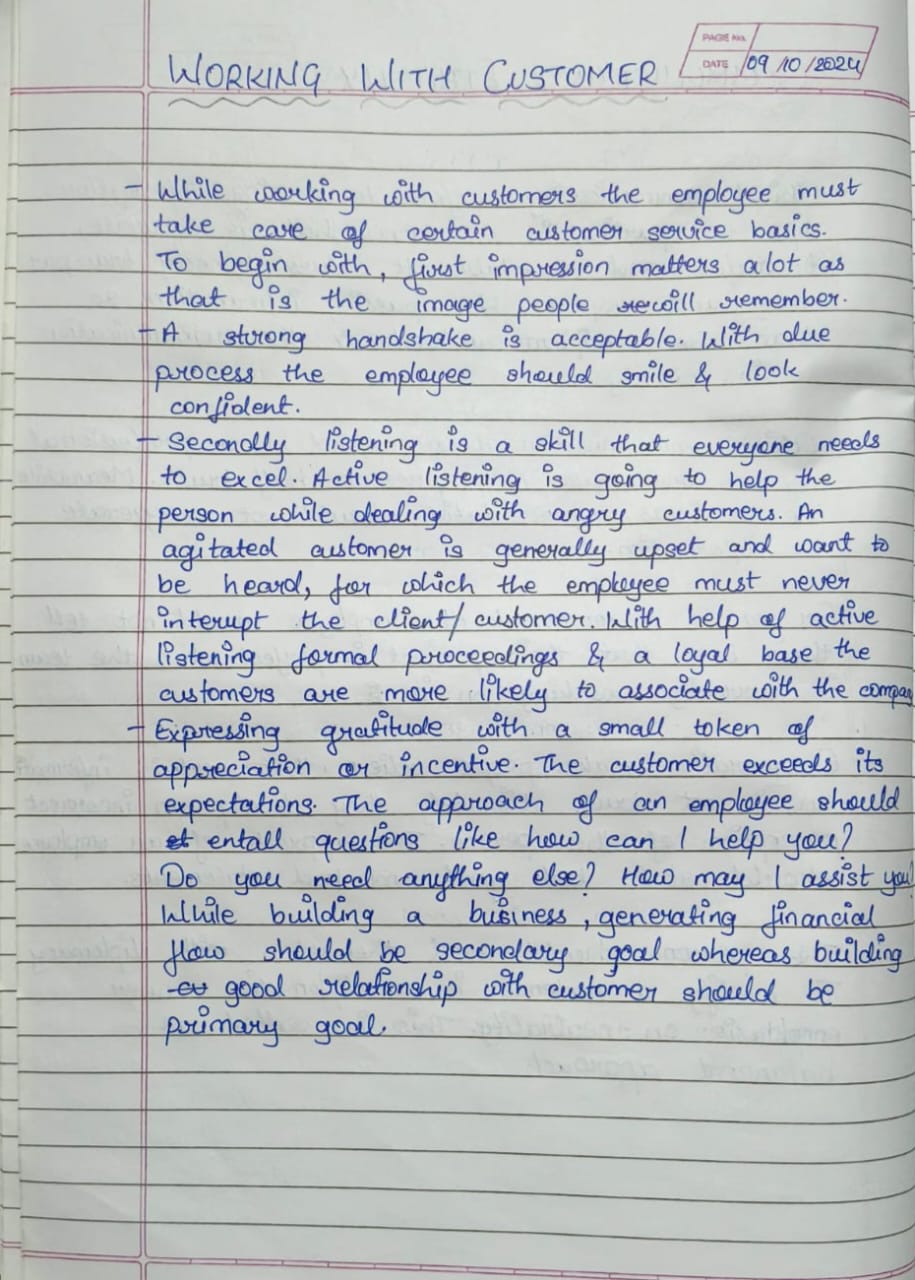 PAGE No.
DATE 09/10/2024
WORKING WITH CUSTOMER
- While working with customers the employee must
take care of certain customer service basics.
To begin with, first impression matters a lot as
that is the image people will remember.
- A strong handshake is acceptable. With due
process the employee should smile & look
confident.
- Secondly listening is a skill that everyone needs
to excel. Active listening is going to help the
person while dealing with angry customers. An
agitated customer is generally upset and want to
be heard, for which the employee must never
interupt the client/customer. With help of active
listening formal proceedings & a loyal base the
customers are more likely to associate with the compan
- Expressing gratitude with a small token of
appreciation or incentive. The customer exceeds its
expectations. The approach of an employee should
entall questions like how can I help you?
Do you need anything else? How may I assist you
While building a business, generating financial
flow should be secondary goal whereas building
good relationship with customer should be
primary goal.